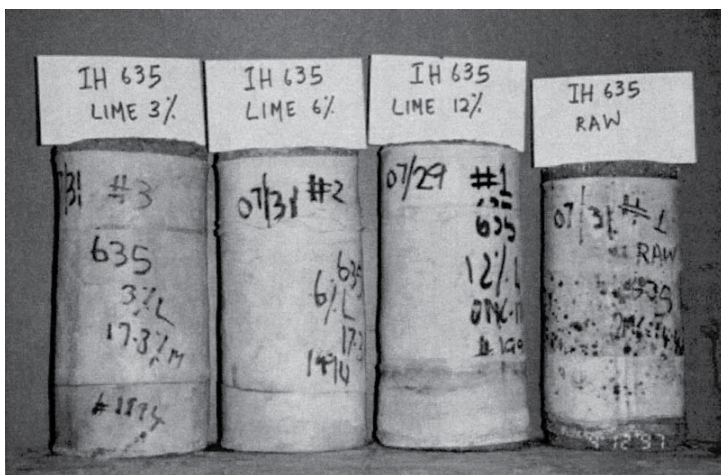 IH 635
LIME 3%
IH 635
LIME 6%
IH 635
LIME 12%
IH 635
RAW
#3
635
3%L
17.3%M
07/31 #2
635
6%L
17.3
1994
07/29 #1
635
12%L
07/31 #1
RAW
635